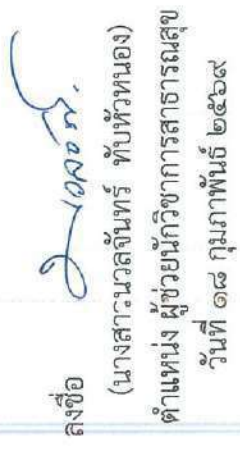 ลงชื่อ
(นางสาวนวลจันทร์ ทับหัวหนอง)
ตำแหน่ง ผู้ช่วยนักวิชาการสาธารณสุข
วันที่ ๑๘ กุมภาพันธ์ ๒๕๖๙